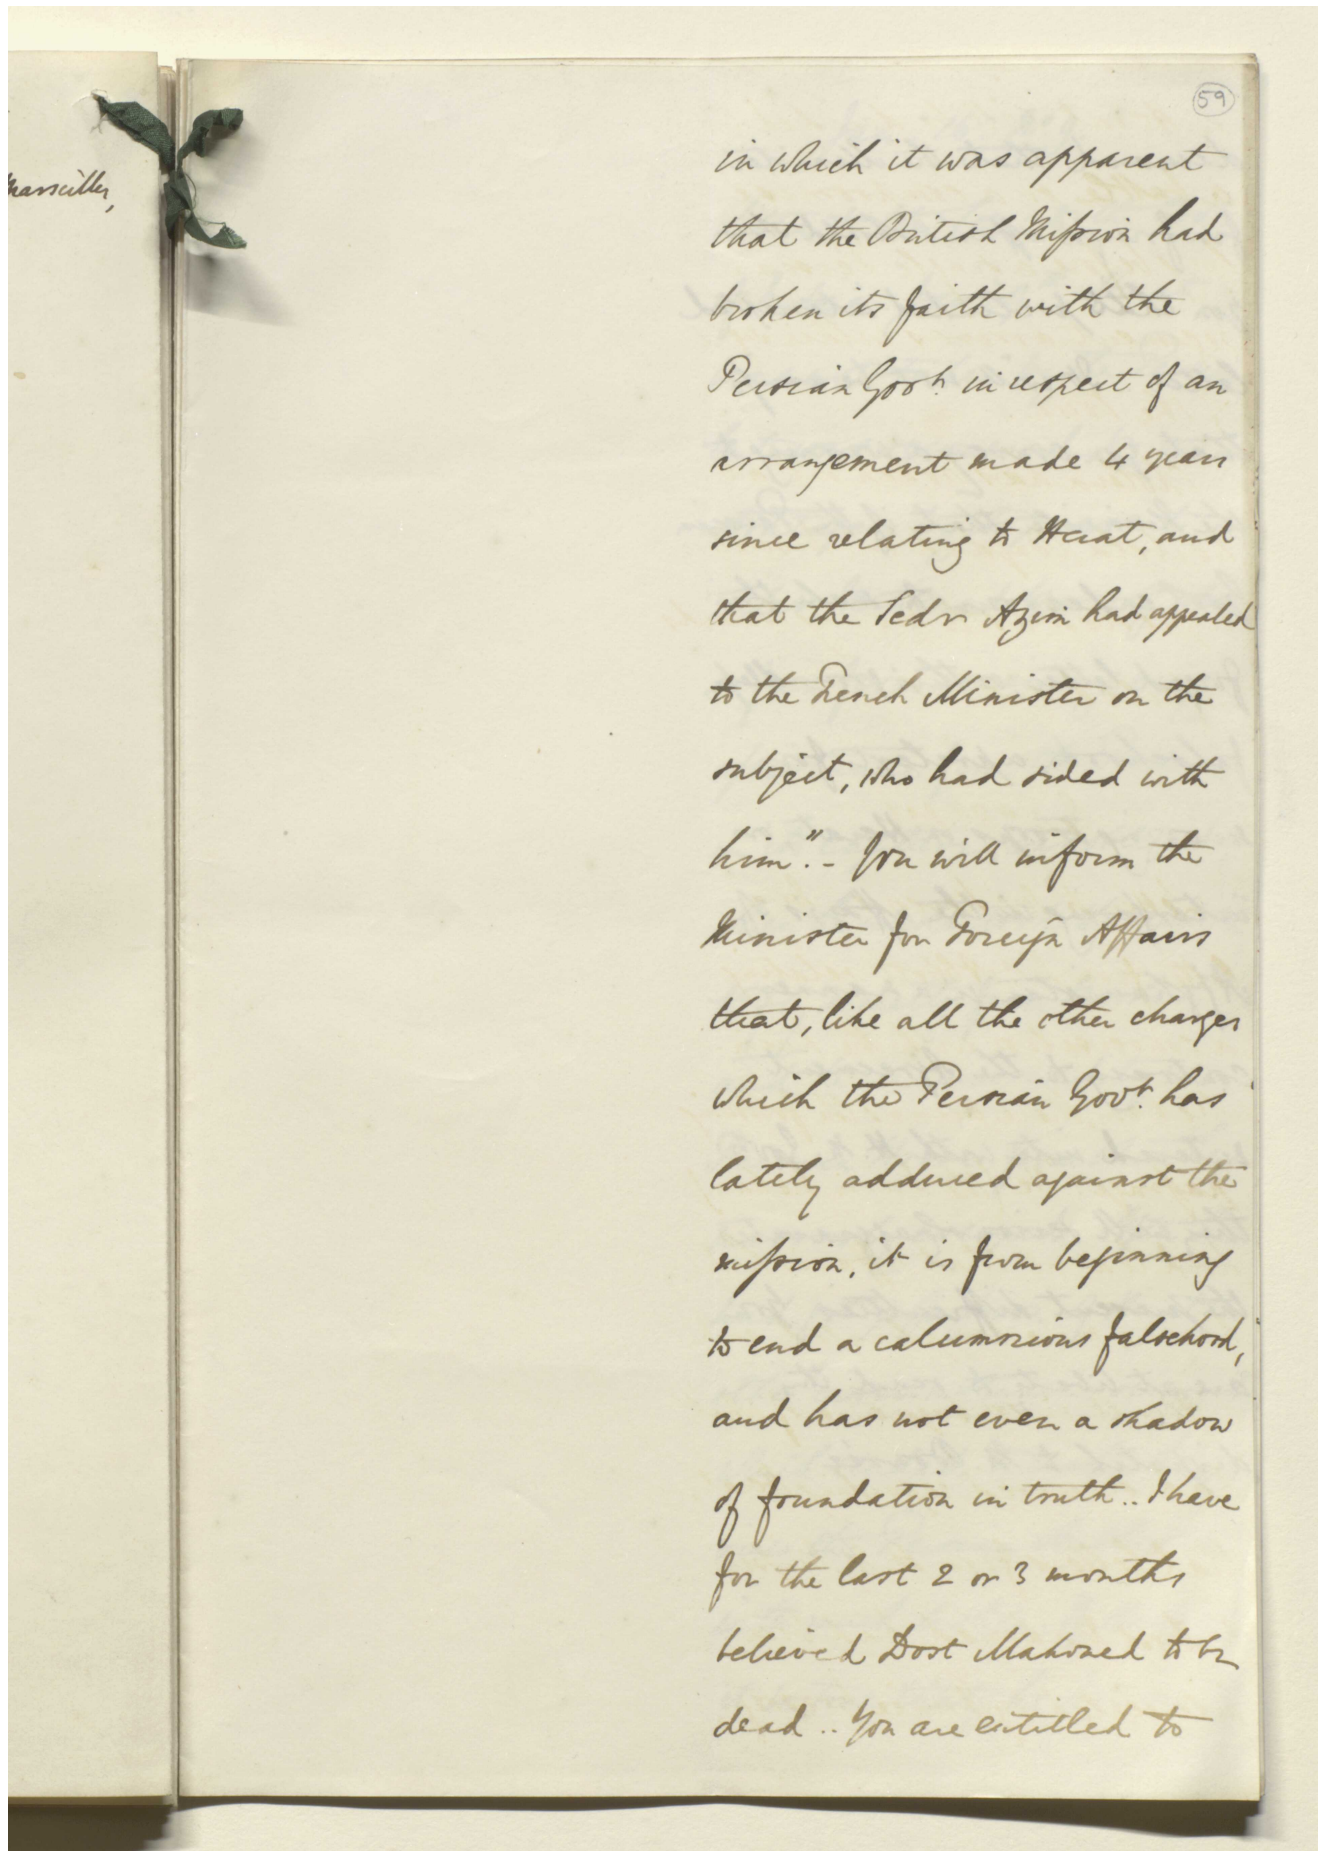 Marseilles,
59
in which it was apparent
that the British Mission had
broken its faith with the
Persian Govt. in respect of an
arrangement made 4 years
since relating to Herat, and
that the Sedr Azim had appealed
to the French Minister on the
subject, who had sided with
him". - You will inform the
Minister for Foreign Affairs
that, like all the other charges
which the Persian Govt. has
lately adduced against the
mission, it is from beginning
to end a calumnious falsehood,
and has not even a shadow
of foundation in truth.. I have
for the last 2 or 3 months
believed Dost Mahomed to be
dead .. You are entitled to